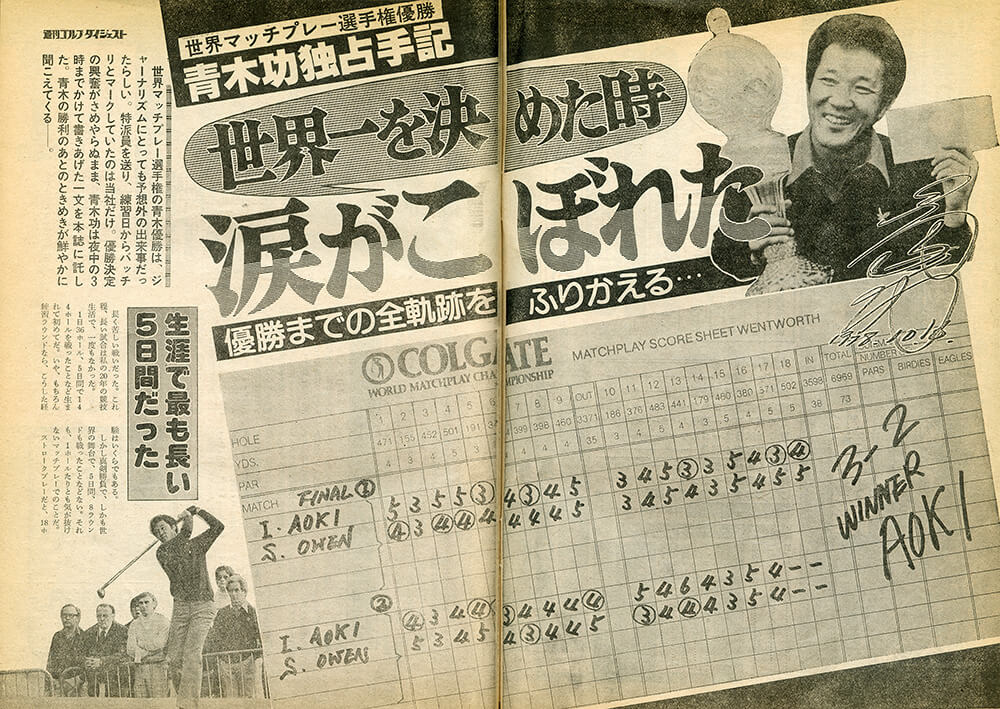 週刊ゴルフダイジェスト
世界マッチプレー選手権優勝
青木功独占手記
世界一を決めた時
涙がこぼれた
優勝までの全軌跡をふりかえる…
世界マッチプレー選手権の青木優勝は、ジ
ャーナリズムにとっても予想外の出来事だっ
たらしい。特派員を送り、練習日からバッチ
リとマークしていたのは当社だけ。優勝決定
の興奮がさめやらぬまま、青木功は夜中の3
時までかけて書きあげた一文を本誌に託し
た。青木の勝利のあとのときめきが鮮やかに
聞こえてくる——。
生涯で最も長い
5日間だった
長く苦しい戦いだった。これ
程、長い試合は私の20年の競技
生活で、一度もなかった。
1日36ホール、5日間で14
4ホールを戦ったことなど生ま
れて初めてだ。いや、もちろん
練習ラウンドなら、こうした経
験はいくらでもある。
しかし真剣勝負で、しかも世
界の舞台で、5日間、8ラウン
ドも戦ったことなどない。それ
も、1ホールたりとも気が抜け
ないマッチプレーでのことだ。
ストロークプレーだと、18ホ
1978.10.16.
COLGATE
WORLD MATCHPLAY CHAMPIONSHIP
MATCHPLAY SCORE SHEET WENTWORTH
HOLE 1 2 3 4 5 6 7 8 9 OUT 10 11 12 13 14 15 16 17 18 IN TOTAL NUMBER PARS BIRDIES EAGLES
YDS. 471 155 452 501 191 399 398 460 3371 186 376 483 441 179 480 380 571 502 3598 6969
PAR 35 38 73
MATCH FINAL ①
I. AOKI 5 3 5 5 ③ 4 ③ 4 5 3 4 5 ③ 3 5 4 ③ ④
S. OWEN ④ 3 ④ ④ 4 4 4 4 5 3 4 5 4 3 5 4 5 5
②
I. AOKI ④ 3 4 ④ ③ 4 4 4 ④ 5 4 6 4 3 5 4 - -
S. OWEN 5 3 4 5 4 ③ 4 4 5 ③ 4 ④ 4 3 5 4 - -
3-2
WINNER
AOKI